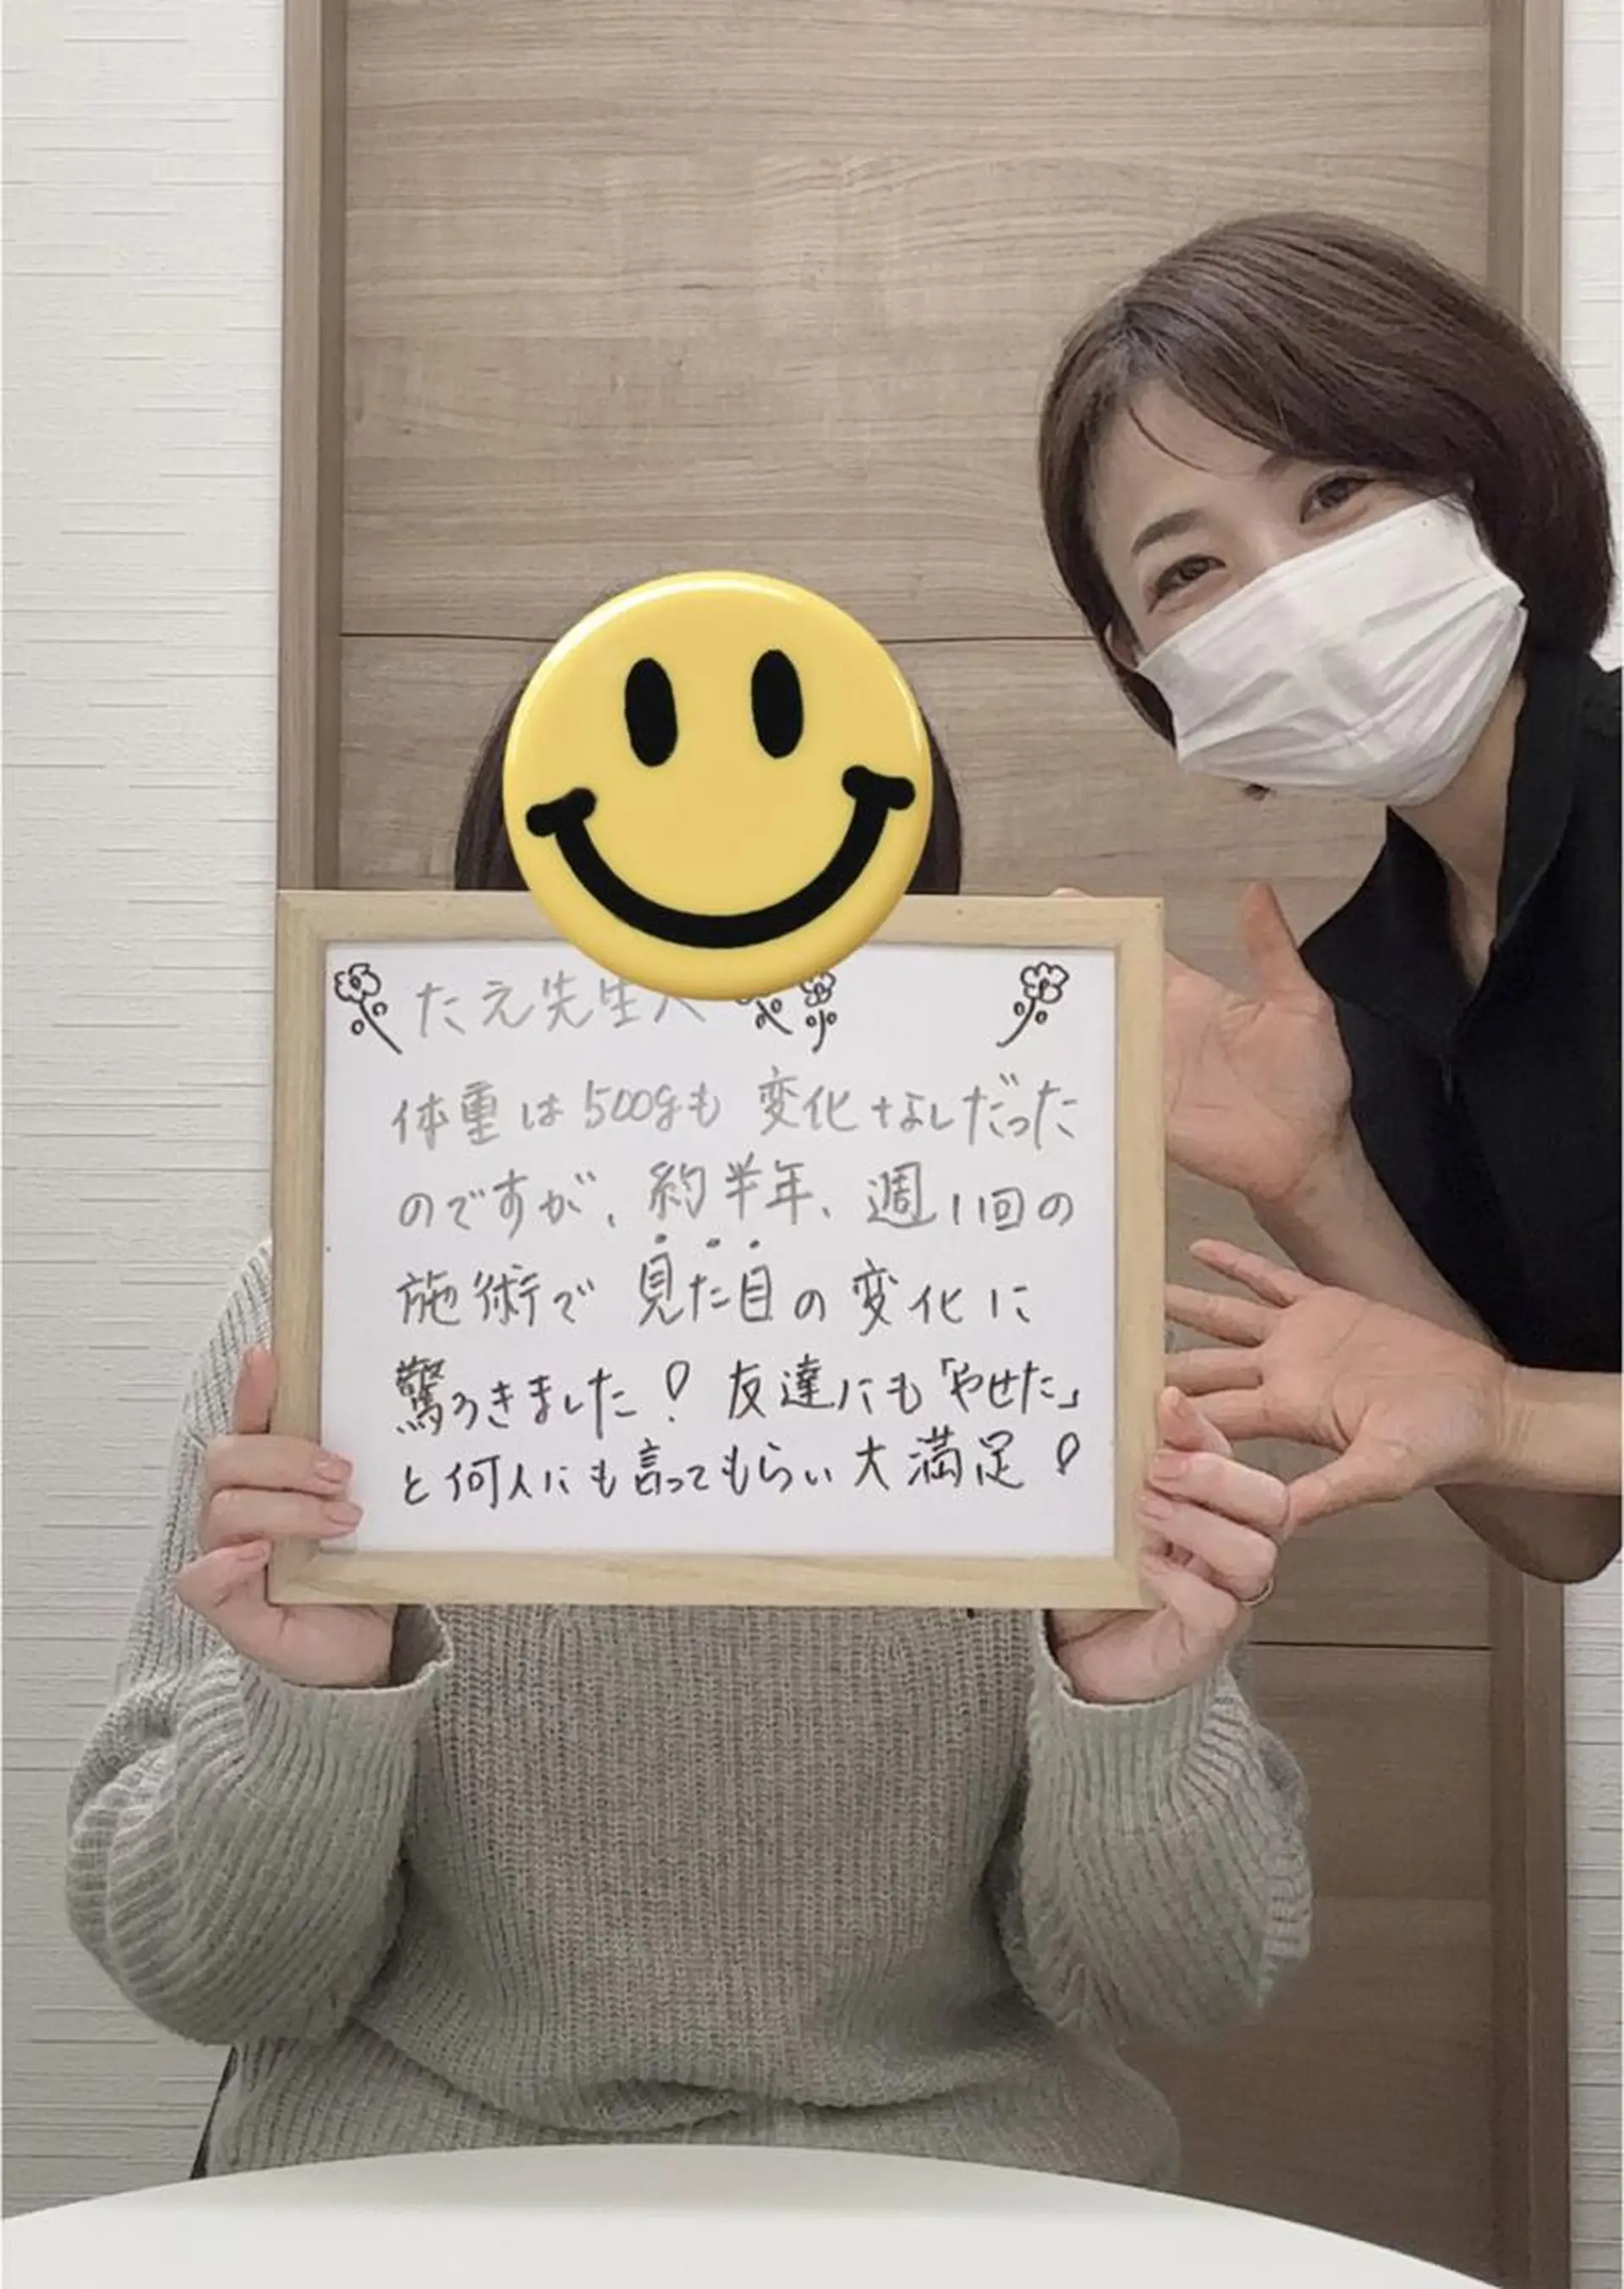 たえ先生へ
体重は500gも変化なしだった
のですが、約半年、週1回の
施術で見た目の変化に
驚ろきました! 友達にも「やせた」
と何人にも言ってもらい大満足!